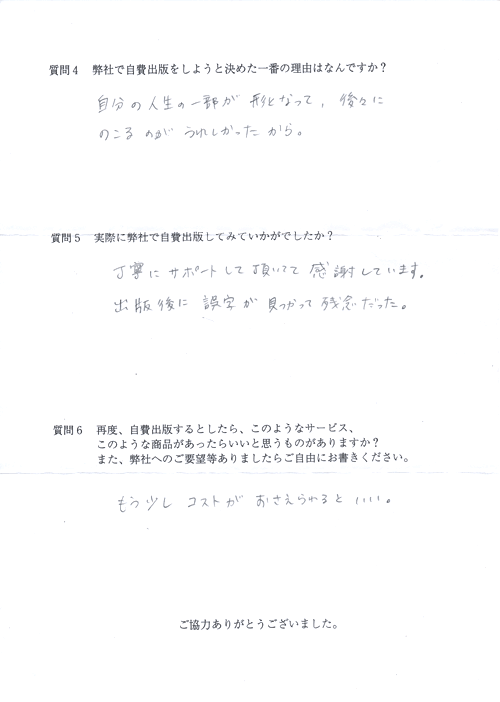 質問４　弊社で自費出版をしようと決めた一番の理由はなんですか？
自分の人生の一部が 形となって、後々に
のこるのが うれしかったから。
質問５　実際に弊社で自費出版してみていかがでしたか？
丁寧にサポートして頂いてて 感謝しています。
出版後に 誤字が見つかって 残念だった。
質問６　再度、自費出版するとしたら、このようなサービス、
このような商品があったらいいと思うものがありますか？
また、弊社へのご要望等ありましたらご自由にお書きください。
もう少し コストが おさえられると いいい。
ご協力ありがとうございました。